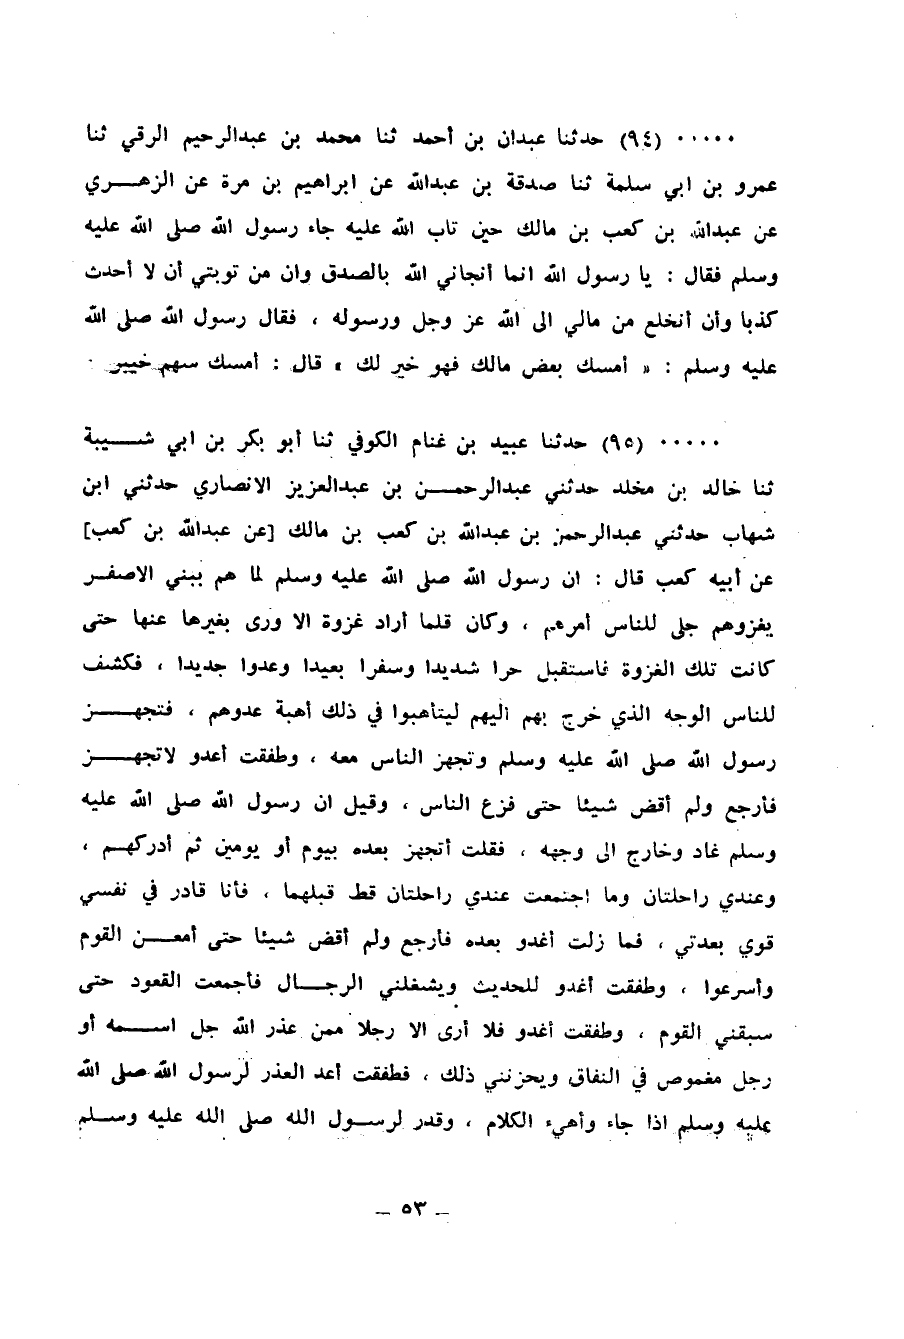 ٠٠٠٠٠ (٩٤) حدثنا عبدان بن أحمد ثنا محمد بن عبدالرحيم الرقي ثنا
عمرو بن ابي سلمة ثنا صدقة بن عبدالله عن ابراهيم بن مرة عن الزهري
عن عبدالله بن كعب بن مالك حين تاب الله عليه جاء رسول الله صلى الله عليه
وسلم فقال : يا رسول الله انما أنجاني الله بالصدق وان من توبتي أن لا أحدث
كذبا وأن أنخلع من مالي الى الله عز وجل ورسوله ، فقال رسول الله صلى الله
عليه وسلم : « أمسك بعض مالك فهو خير لك » قال : أمسك سهم خيبر ٠
٠٠٠٠٠ (٩٥) حدثنا عبيد بن غنام الكوفي ثنا أبو بكر بن ابي شيبة
ثنا خالد بن مخلد حدثني عبدالرحمن بن عبدالعزيز الانصاري حدثني ابن
شهاب حدثني عبدالرحمن بن عبدالله بن كعب بن مالك [عن عبدالله بن كعب]
عن أبيه كعب قال : ان رسول الله صلى الله عليه وسلم لما هم ببني الاصفر
يغزوهم جلى للناس أمرهم ، وكان قلما أراد غزوة الا ورى بغيرها عنها حتى
كانت تلك الغزوة فاستقبل حرا شديدا وسفرا بعيدا وعدوا جديدا ، فكشف
للناس الوجه الذي خرج بهم اليهم ليتأهبوا في ذلك أهبة عدوهم ، فتجهز
رسول الله صلى الله عليه وسلم وتجهز الناس معه ، وطفقت أغدو لاتجهز
فأرجع ولم أقض شيئا حتى فزع الناس ، وقيل ان رسول الله صلى الله عليه
وسلم غاد وخارج الى وجهه ، فقلت أتجهز بعده بيوم أو يومين ثم أدركهم ،
وعندي راحلتان وما اجتمعت عندي راحلتان قط قبلهما ، فأنا قادر في نفسي
قوي بعدتي ، فما زلت أغدو بعده فأرجع ولم أقض شيئا حتى أمعن القوم
وأسرعوا ، وطفقت أغدو للحديث ويشغلني الرجال فأجمعت القعود حتى
سبقني القوم ، وطفقت أغدو فلا أرى الا رجلا ممن عذر الله جل اسمه أو
رجل مغموص في النفاق ويحزنني ذلك ، فطفقت أعد العذر لرسول الله صلى الله
عليه وسلم اذا جاء وأهيء الكلام ، وقدر لرسول الله صلى الله عليه وسلم
_ ٥٣ _